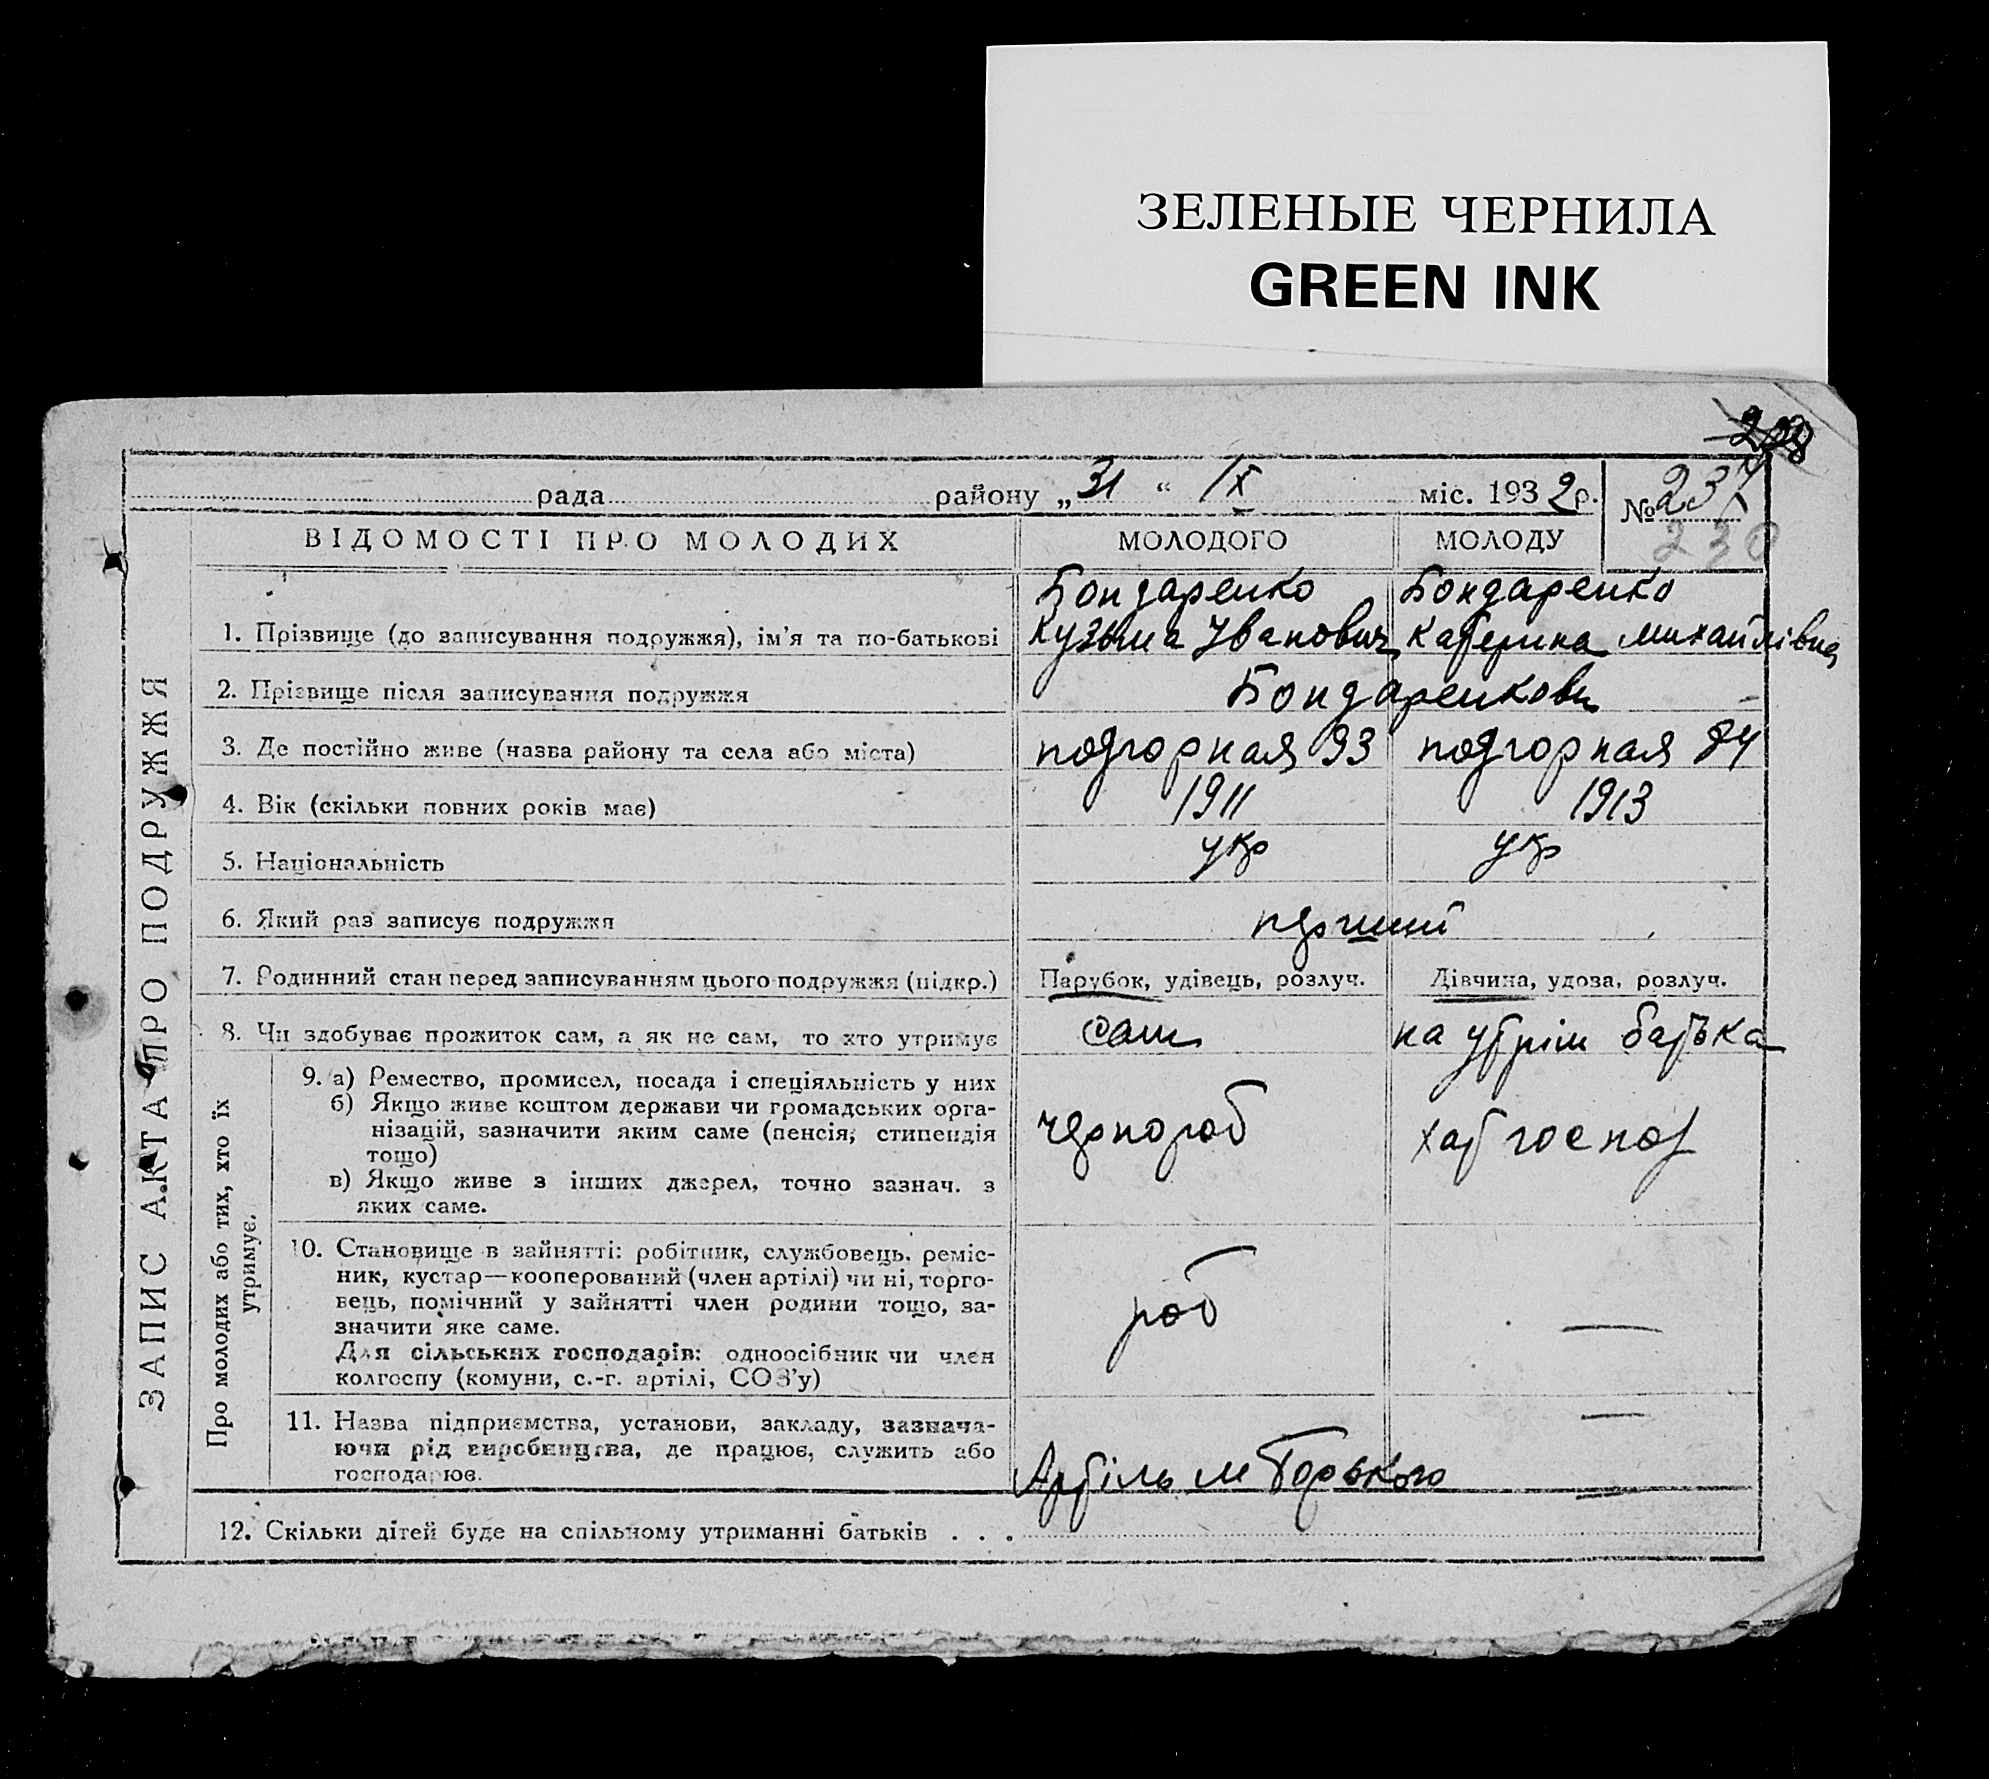 ЗЕЛЕНЫЕ ЧЕРНИЛА
GREEN INK
рада районую „31“ IX міс. 1932 р. №
230
ЗАПИС АКТА ПРО ПОДРУЖЖЯ
ВІДОМОСТІ ПРО МОЛОДИХ МОЛОДОГО МОЛОДУ
Бондаренко Бондаренко
1. Прізвище (до записування подружжя), ім'я та по-батькові Кузьма Іванович Катерина Михайлівна
2. Прізвище після записування подружжя Бондаренкови
3. Де постійно живе (назва району та села або міста) подгорная 93 подгорная 84
4. Вік (скільки повних років має) 1911 1913
5. Національність укр укр
6. Який раз записує подружжя перший
7. Родинний стан перед записуванням цього подружжя (підкр.) Парубок, удівець, розлуч. Дівчина, удова, розлуч.
8. Чи здобуває прожиток сам, а як не сам, то хто утримує сам на утрім батька
Про молодих або тих, хто їх
утримує.
9. а) Ремество, промисел, посада і спеціяльність у них
б) Якщо живе коштом держави чи громадських орга-
нізацій, зазначити яким саме (пенсія, стипендія
тощо)
в) Якщо живе з інших джерел, точно зазнач. з
яких саме.
чернороб хат господ
10. Становище в зайнятті: робітник, службовець, реміс-
ник, кустар—кооперований (член артілі) чи ні, торго-
вець, помічний у зайнятті член родини тощо, за-
значити яке саме.
Для сільських господарів: одноосібник чи член
колгоспу (комуни, с.-г. артілі, СОЗ'у)
роб —
11. Назва підприємства, установи, закладу, зазнача-
ючи рід виробництва, де працює, служить або
господарює.
Артіль м Горького —
12. Скільки дітей буде на спільному утриманні батьків . . .